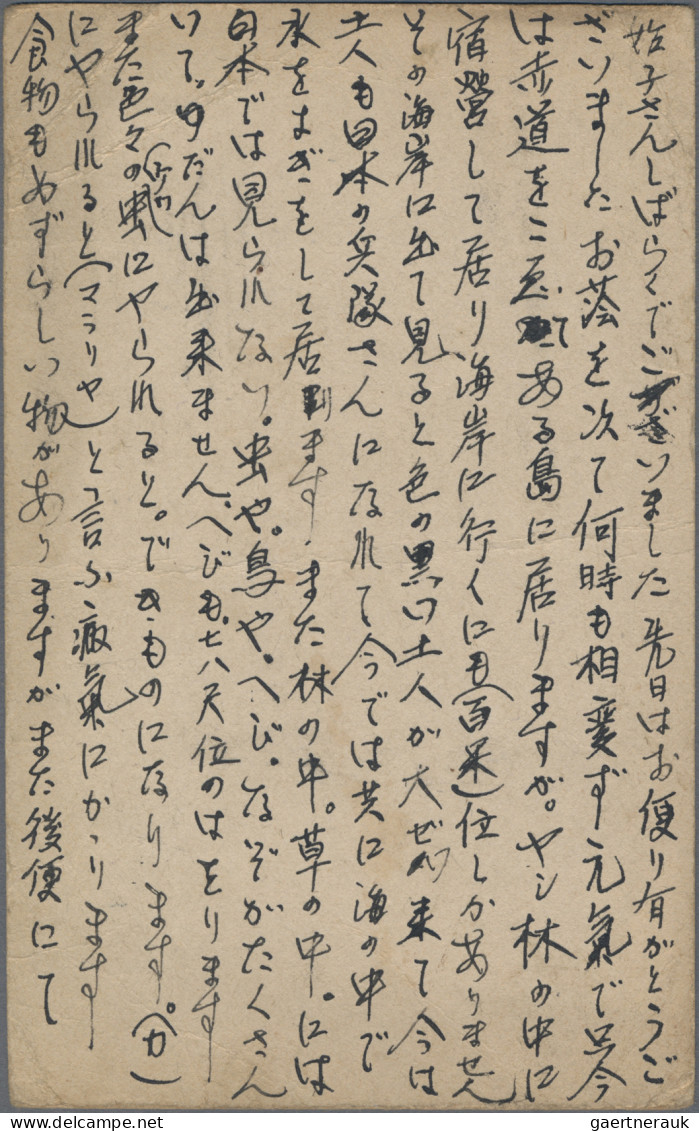 始子さんしばらくでございました先日はお便り有がとうご
ざいましたお蔭を次て何時も相変ず元氣で只今
は赤道をこゑてある島に居りますが。ヤシ林の中に
宿營して居り海岸に行くにも(百米)位しかありません
その海岸に出て見ると色の黒い土人が大ぜい来て今は
土人も日本の兵隊さんになれて今では共に海の中で
水をよぎをして居ります、また林の中。草の中。には
日本では見られない。虫や。鳥や。へび。なぞがたくさん
いて。ゆだんは出来ません、へびも。七八尺位のはをります
また色々の虫にやられると。できものになります。(カ)
にやられると(マラリヤ)と言ふ、病氣にかゝります
食物もめずらしい物がありますがまた後便にて
gaertnerauk.com